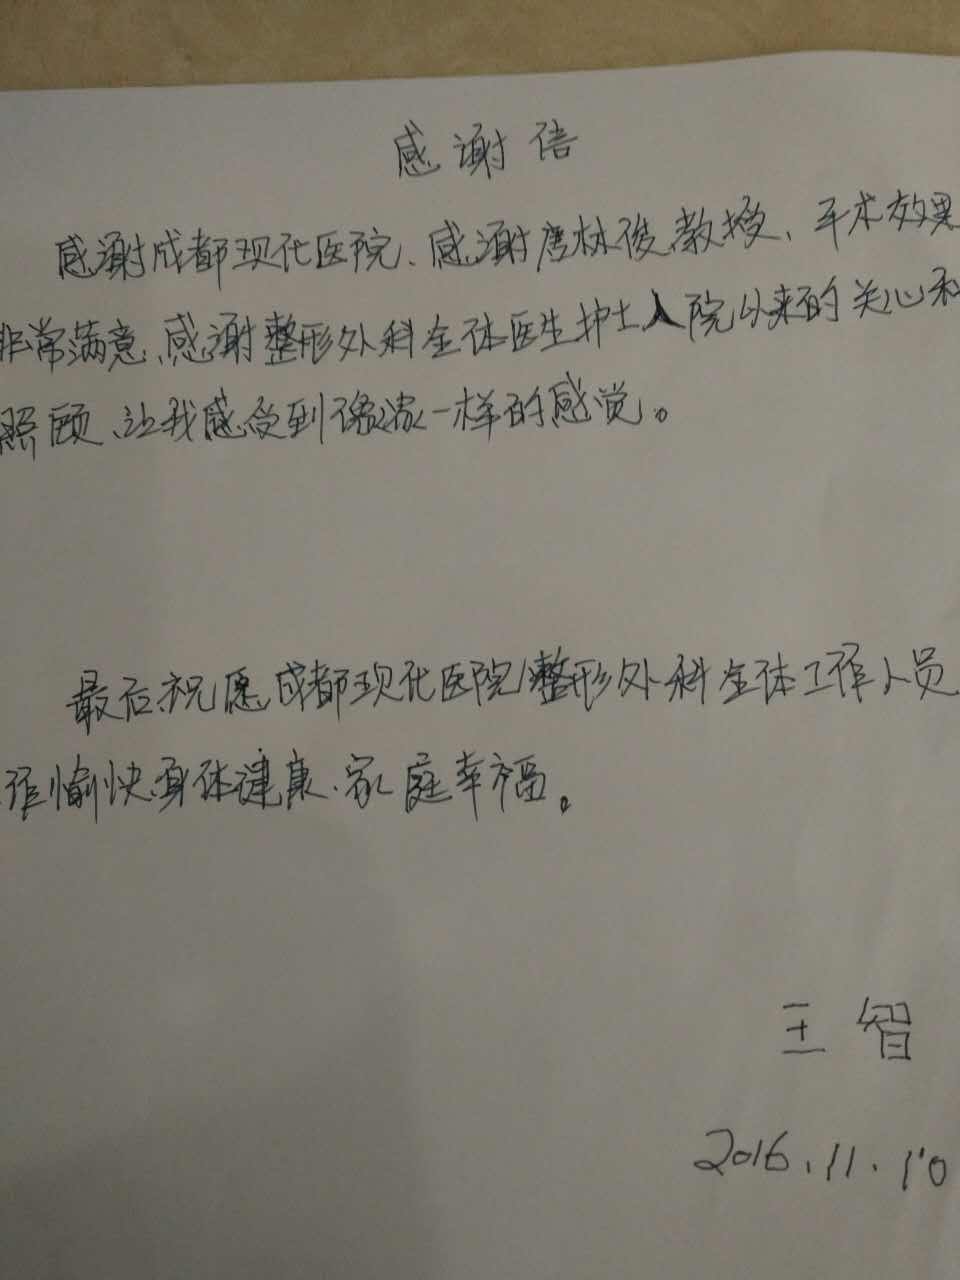 感谢信
感谢成都现代医院、感谢唐林俊教授、手术效果
非常满意、感谢整形外科全体医生护士入院以来的关心和
照顾、让我感受到像家一样的感觉。
最后祝愿成都现代医院整形外科全体工作人员
作愉快、身体健康、家庭幸福。
王智
2016.11.10